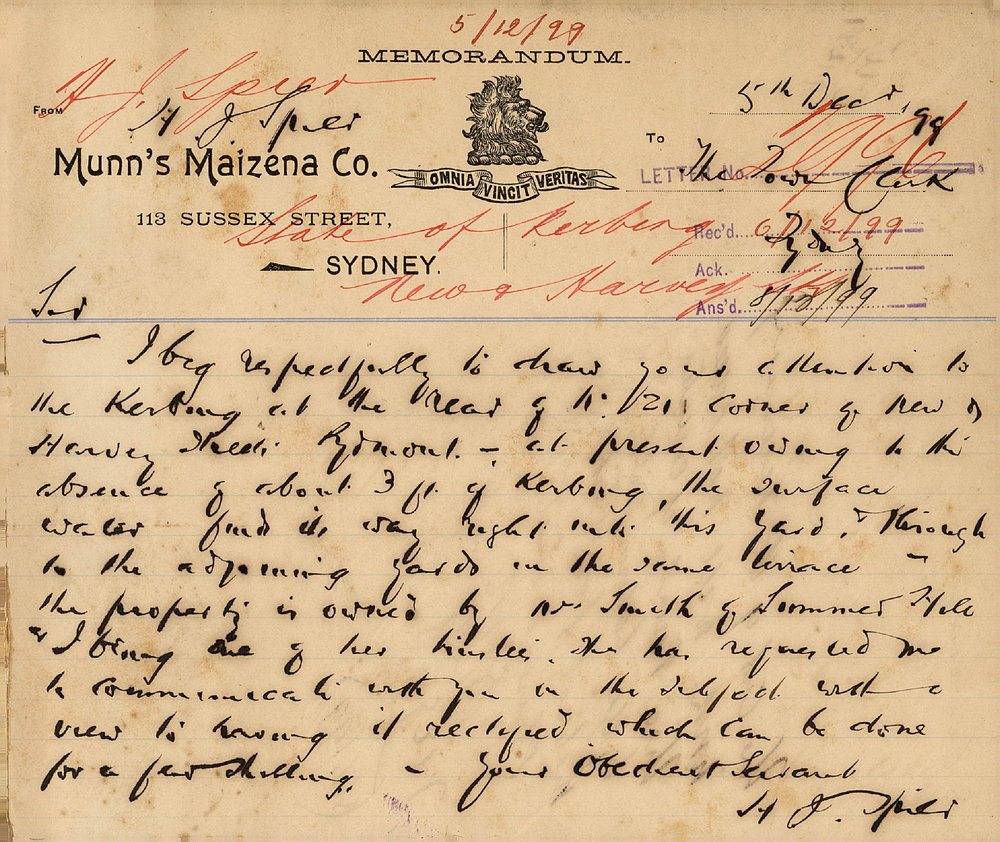 5/12/99
MEMORANDUM.
H J. Spier
FROM
H. J Spier
5th Decr, 99
To
The Town Clerk
LETTER No.
Munn's Maizena Co.
OMNIA VINCIT VERITAS
113 SUSSEX STREET,
State of Kerbing
Rec'd. 6/12/99
Sydney
SYDNEY.
Ack.
New & Harvey Sts
Ans'd. 8/12/99
Sir
I beg respectfully to draw your attention to
the Kerbing at the rear of No. 121 Corner of New &
Harvey Streets Pyrmont. - at present owing to the
absence of about 3 ft of Kerbing, the surface
water finds its way right into this yard, & through
to the adjoining yards in the same terrace -
the property is owned by Mrs Smith of Summer Hill
& I being one of her trustees. She has requested me
to communicate with you on the subject with a
view to having it rectified which can be done
for a few shillings. - Your Obedient Servant
H J. Spier